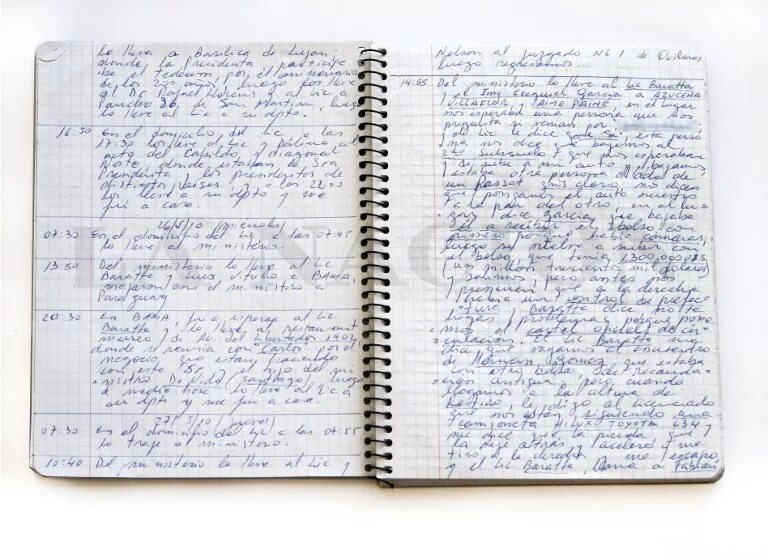 lo lleva a Basilica de Lujan
donde la Presidenta participe
de el tedeum por el aniversario
de los 200 años, luego los lleve
al Dr Rafael Llorens y al Lic a
de San Martin, luego
lo lleve al Lic a su dpto.
16:50 En el domicilio del Lic a las
17:30 los lleve al Lic y Paulina al
acto del Cabildo, y diagonal
Norte, donde estaban la Sra
Presidenta y los presidentes de
distintos paises, y a las 22:00
los lleve a su dpto y me
fui a casa.
26/5/10 (miercoles)
07:30 En el domicilio del Lic a las 07:45
lo lleve al ministerio.
13:50 Del ministerio lo lleve al Lic
Baratta y Luis Vitullo a BAIRES,
viajaron con el ministro a
Paraguay
20:30 En BAIRES, fui a esperar al Lic
Baratta y lo lleve al restaurant
museo, de Av. del Libertador 1902
donde se reunia con Carlos por el
negocio que estan haciendo
con este Sr. y el hijo del mi-
nistro De Vido (Santiago), luego
a media noche lo lleve al Lic a
su dpto y me fui a casa.
27/5/10 (jueves)
07:30 En el domicilio del Lic a las 07:55
lo traje al ministerio.
10:40 Del ministerio lo lleve al Lic y
Nelson al juzgado Nº 1 de Quilmes
luego regresamos.
14:55 Del ministerio lo lleve al Lic Baratta
y el Ing Ezequiel Garcia a AZUCENA
VILLAFLOR y JAIME PAINE, en el lugar
nos esperaba una persona que nos
pregunta si venian por
el Lic le dice que si, esta perso
na nos dice que bajemos al
2do subsuelo que nos esperaban
y se sube a mi auto y bajamos,
estaba otra persona al lado de
un passat gris claro, nos dicen
que pongamos el auto nuestro
a la par del otro, en el lu
gar dice Garcia que bajaba
el a recibir el bolso con
dinero porque habia camaras,
luego se vuelve a subir con
el bolso, que tenia 1.300.000 U$S
(un millon trescientos mil dolares)
y salimos pero antes nos
previnieron que a la derecha
habia un control de prefec-
tura Baratta dice no te
hagas problema, porque pone
mos el cartel oficial de cir-
culacion. el Lic Baratta me
dice que vayamos al encuentro
de Hernan Gomez que estaba
con otro bolso de recauda-
cion antigua, pero cuando
llegamos a la altura de
le digo al licenciado
que nos estan siguiendo una
camioneta HILUX TOYOTA 634
me dice que la pierda, que
la deje atras, y acelero, me
tiro a la derecha y me escapo,
y el Lic Baratta, llama a Fabian
LA NACION